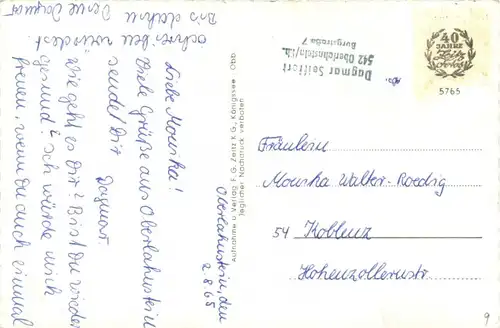 Oberlahnstein, den
2.8.65
Liebe Mouska!
Viele Grüße aus Oberlahnstein
sendet Dir
Dagmar.
Wie geht es Dir? Bist Du wieder
gesund? Ich würde mich
freuen, wenn du auch einmal
schreiben würdest
Bis dahin
Deine Dagmar
Aufnahme u. Verlag F. G. Zeitz K.G., Königssee Obb.
Jeglicher Nachdruck verboten
Dagmar Seiffert
542 Oberlahnstein/Rh.
Burgstraße 7
40
JAHRE
Zeitz
5765
Fräulein
Mouska Walter-Roedig
54 Koblenz
Hohenzollernstr
9